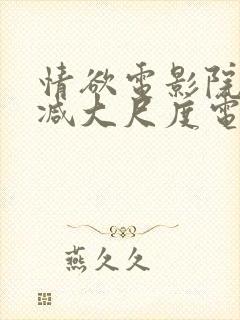 情欲電影院
减大尺度電
燕久久